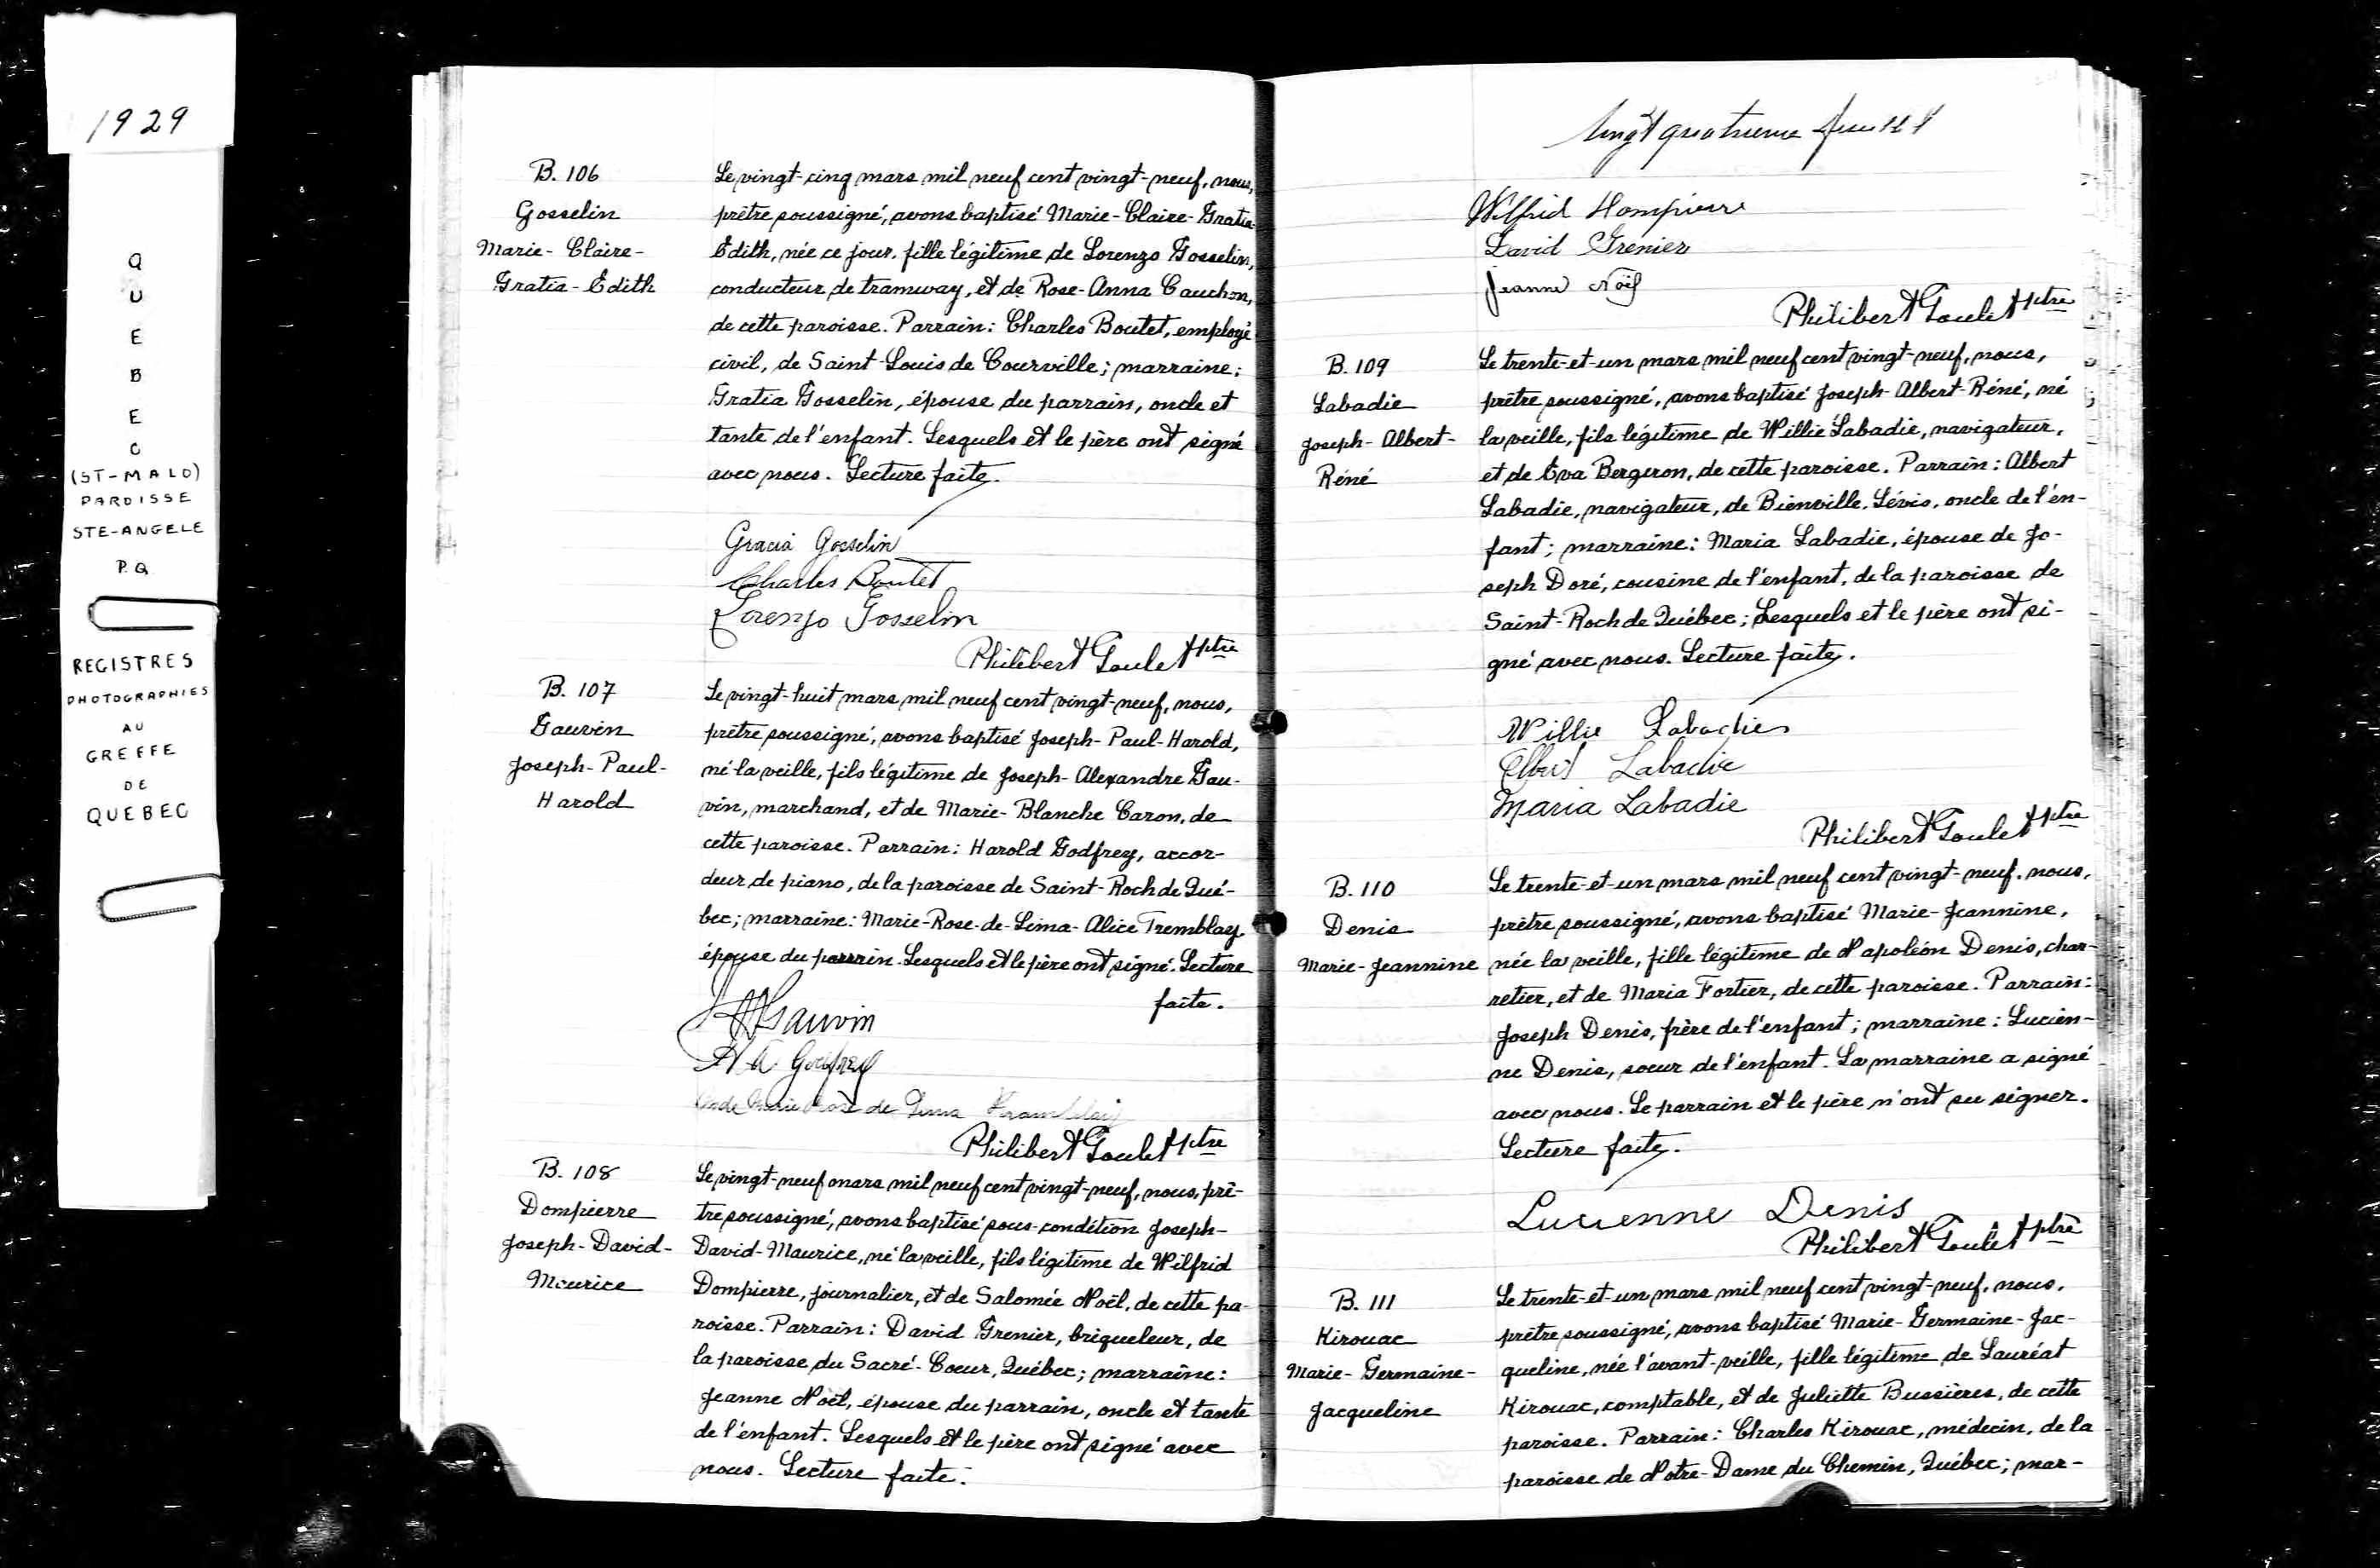 1929
Q
U
E
B
E
C
(ST-MALO)
PAROISSE
STE-ANGELE
P.Q
REGISTRES
PHOTOGRAPHIES
AU
GREFFE
DE
QUEBEC
B. 106
Gosselin
Marie-Claire-
Gratia-Edith
Le vingt-cinq mars mil neuf cent vingt-neuf, nous,
prêtre soussigné, avons baptisé Marie-Claire-Gratia
Edith, née ce jour, fille légitime de Lorenzo Gosselin,
conducteur de tramway, et de Rose-Anna Cauchon,
de cette paroisse. Parrain: Charles Boutet, employé
civil, de Saint-Louis de Courville; marraine:
Gratia Gosselin, épouse du parrain, oncle et
tante de l'enfant. Lesquels et le père ont signé
avec nous. Lecture faite.
Gracia Gosselin
Charles Boutet
Lorenzo Gosselin
Philibert Goulet ptre
B. 107
Gauvin
Joseph-Paul-
Harold
Le vingt-huit mars mil neuf cent vingt-neuf, nous,
prêtre soussigné, avons baptisé Joseph-Paul-Harold,
né la veille, fils légitime de Joseph-Alexandre Gau-
vin, marchand, et de Marie-Blanche Caron, de
cette paroisse. Parrain: Harold Godfrey, accor-
deur de piano, de la paroisse de Saint-Roch de Qué-
bec; marraine: Marie-Rose-de-Lima-Alice Tremblay
épouse du parrain. Lesquels et le père ont signé. Lecture
faite.
Gauvin
Godfrey
Marie Rose de Lima
Philibert Goulet ptre
B. 108
Dompierre
Joseph-David-
Maurice
Le vingt-neuf mars mil neuf cent vingt-neuf, nous, prê-
tre soussigné, avons baptisé sous-condition Joseph-
David-Maurice, né la veille, fils légitime de Wilfrid
Dompierre, journalier, et de Salomée Noël, de cette pa-
roisse. Parrain: David Grenier, briqueleur, de
la paroisse du Sacré-Coeur, Québec; marraine:
Jeanne Noël, épouse du parrain, oncle et tante
de l'enfant. Lesquels et le père ont signé avec
nous. Lecture faite.
Vingt quatrieme feuillet
Wilfrid Dompierre
David Grenier
Jeanne Noël
Philibert Goulet ptre
B. 109
Labadie
Joseph-Albert-
Réné
Le trente-et-un mars mil neuf cent vingt-neuf, nous,
prêtre soussigné, avons baptisé Joseph-Albert-Réné, né
la veille, fils légitime de Willie Labadie, navigateur,
et de Eva Bergeron, de cette paroisse. Parrain: Albert
Labadie, navigateur, de Bienville, Lévis, oncle de l'en-
fant; marraine: Maria Labadie, épouse de Jo-
seph Doré, cousine de l'enfant, de la paroisse de
Saint-Roch de Québec; Lesquels et le père ont si-
gné avec nous. Lecture faite.
Willie Labadie
Albert Labadie
Maria Labadie
Philibert Goulet ptre
B. 110
Denis
Marie-Jeannine
Le trente-et-un mars mil neuf cent vingt-neuf, nous,
prêtre soussigné, avons baptisé Marie-Jeannine,
née la veille, fille légitime de Napoléon Denis, char-
retier, et de Maria Fortier, de cette paroisse. Parrain:
Joseph Denis, frère de l'enfant; marraine: Lucien-
ne Denis, soeur de l'enfant. La marraine a signé
avec nous. Le parrain et le père n'ont su signer.
Lecture faite.
Lucienne Denis
Philibert Goulet ptre
B. 111
Kirouac
Marie-Germaine-
Jacqueline
Le trente-et-un mars mil neuf cent vingt-neuf, nous,
prêtre soussigné, avons baptisé Marie-Germaine-Jac-
queline, née l'avant-veille, fille légitime de Lauréat
Kirouac, comptable, et de Juliette Bussières, de cette
paroisse. Parrain: Charles Kirouac, médecin, de la
paroisse de Notre-Dame du Chemin, Québec; mar-